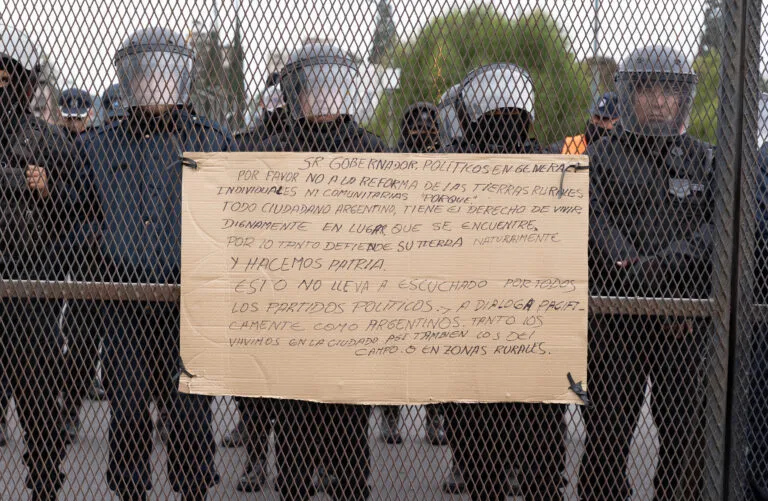 SR GOBERNADOR, POLITICOS EN GENERAL
POR FAVOR NO A LA REFORMA DE LAS TIERRAS RURALES
INDIVIDUALES NI COMUNITARIAS "PORQUE"
TODO CIUDADANO ARGENTINO, TIENE EL DERECHO DE VIVIR
DIGNAMENTE EN LUGAR QUE SE ENCUENTRE,
POR LO TANTO DEFIENDE SU TIERRA NATURALMENTE
Y HACEMOS PATRIA.
ESTO NO LLEVA A ESCUCHADO POR TODOS
LOS PARTIDOS POLITICOS., A DIALOGA PACIFI-
CAMENTE COMO ARGENTINOS. TANTO LOS
VAVIMOS EN LA CIUDAD ASI TAMBIEN LOS DEL
CAMPO. O EN ZONAS RURALES.